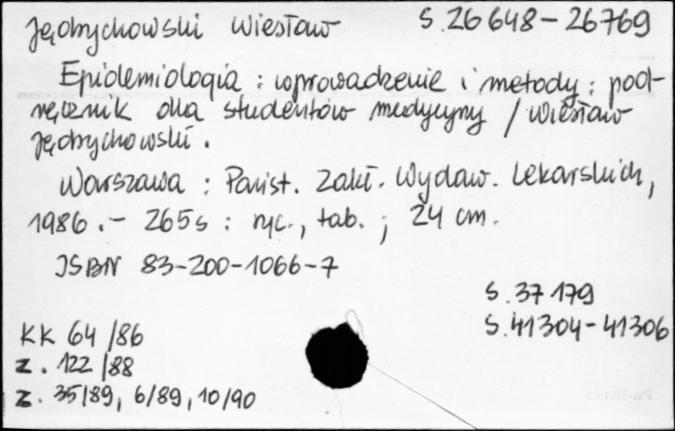 Jędrychowski Wiesław S. 26 648 - 26 769
Epidemiologia : wprowadzenie i metody : pod-
ręcznik dla studentów medycyny / Wiesław
Jędrychowski.
Warszawa : Państ. Zakł. Wydaw. Lekarskich,
1986. - 265 s : ryc., tab. ; 24 cm.
ISBN 83-200-1066-7
S. 37 179
S. 41304 - 41306
KK 64/86
Z. 122/88
Z. 35/89, 6/89, 10/90